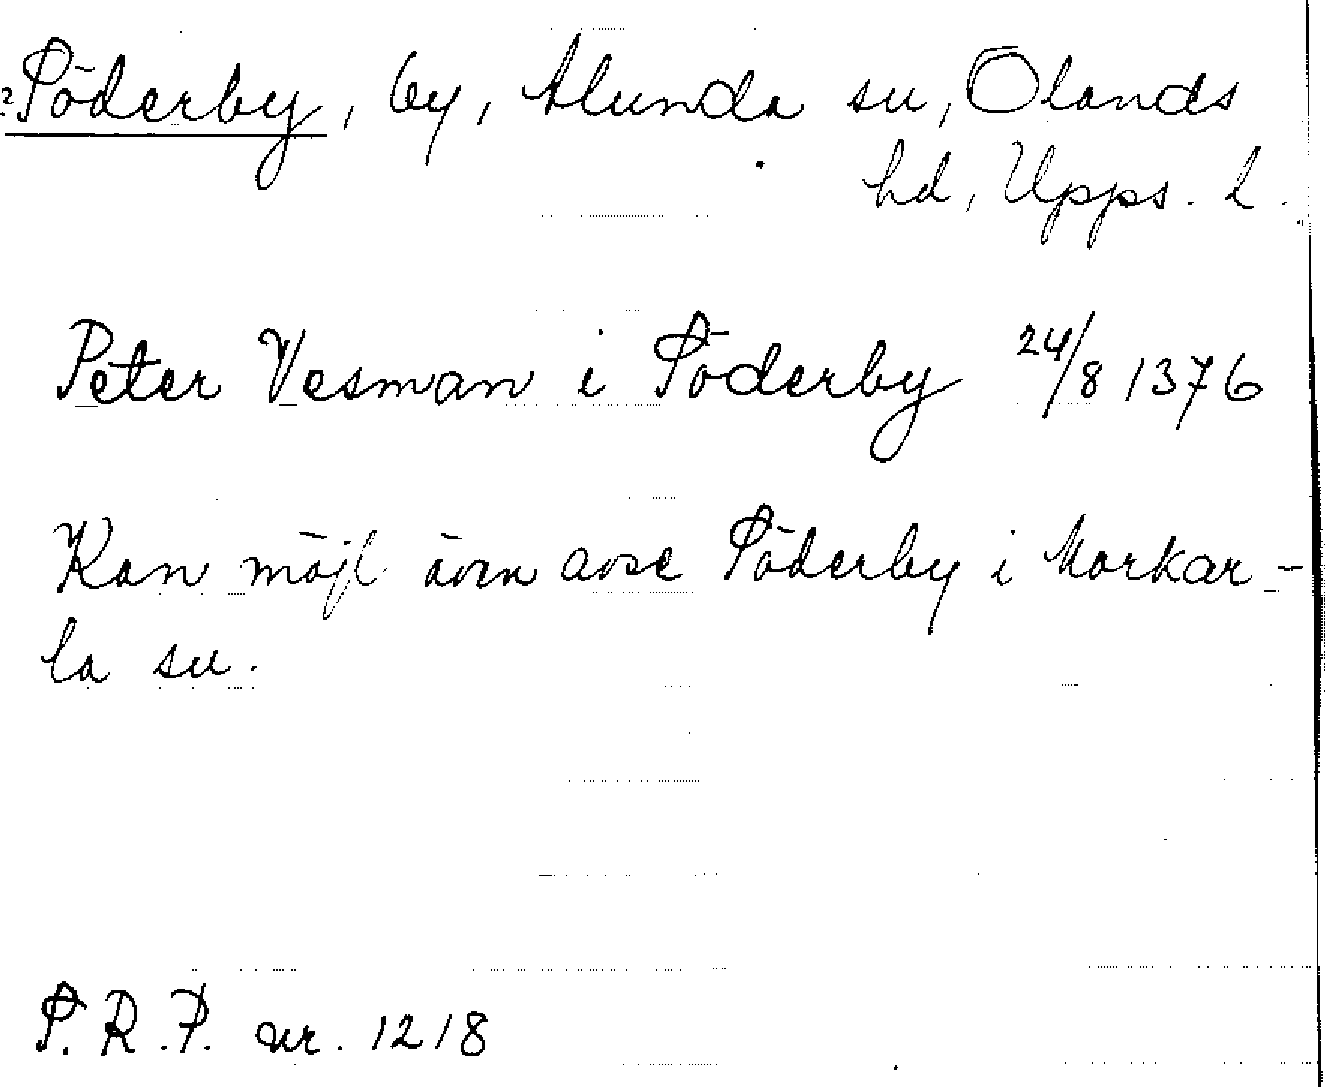 ?Söderby, by, Alunda sn, Olands
hd, Upps. l.
Peter Vesman i Söderby 24/8 1376
Kan möjl även avse Söderby i Morkar-
la sn.
S.R.P. nr. 1218